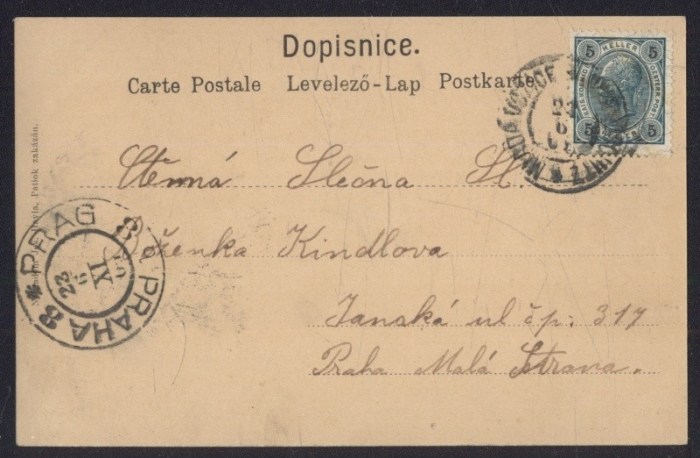 Dopisnice.
Carte Postale Levelező-Lap Postkarte
5 HELLER 5
5 5
Ctěnná Slečna Sl.
Boženka Kindlova
Janská ul čp. 317
Praha Malá Strana.
PRAG 8
PRAHA 8
23
XI
Patisk zakázán.